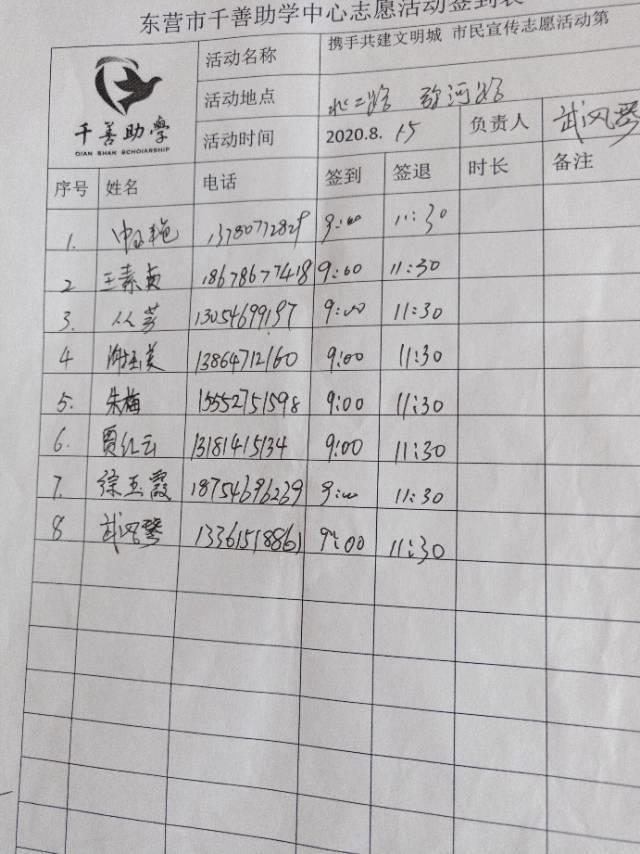 东营市千善助学中心志愿活动签到表
千善助学
QIAN SHAN SCHOIARSHIP
活动名称 携手共建文明城 市民宣传志愿活动第
活动地点 北二路
活动时间 2020.8.15 负责人 武风琴
序号 姓名 电话 签到 签退 时长 备注
1. 13780772829 9:00 11:30
2 王素贞 18678677418 9:00 11:30
3. 丛芳 13054699197 9:00 11:30
4 13864712160 9:00 11:30
5. 朱梅 15552751598 9:00 11:30
6. 贾红云 13181415134 9:00 11:30
7. 徐玉霞 18754696239 9:00 11:30
8 武风琴 13361518861 9:00 11:30